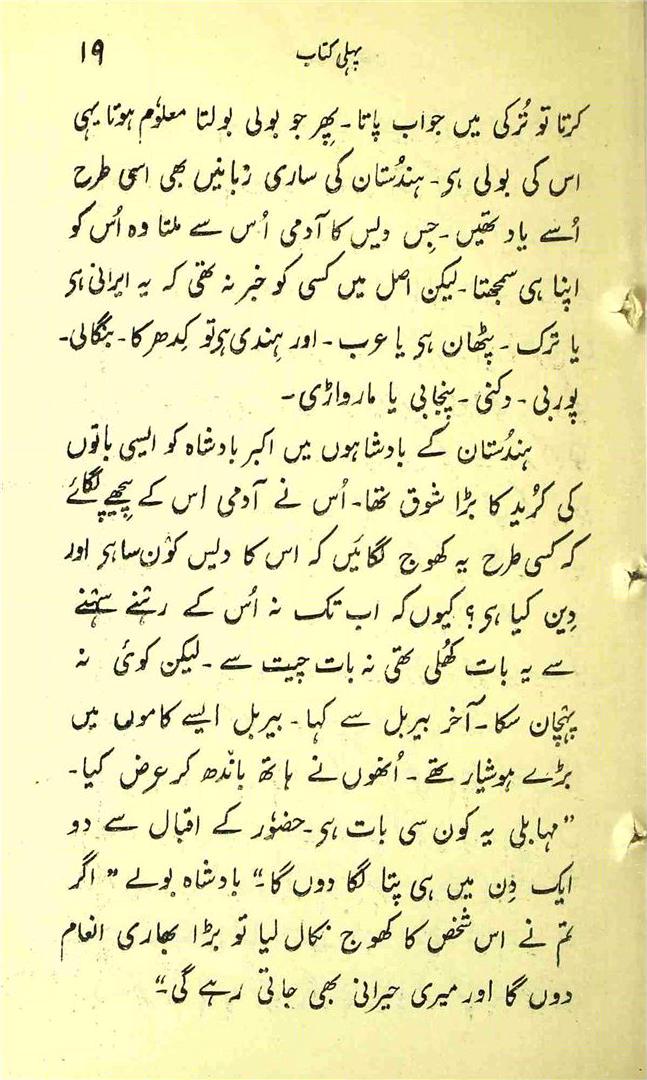 پہلی کتاب ۱۹
کرتا تو تُرکی میں جواب پاتا۔ پھِر جو بولی بولتا معلوٗم ہوتا یہی
اس کی بولی ہو۔ ہندُستان کی ساری زبانیں بھی اسی طرح
اُسے یاد تھیں۔ جِس دیس کا آدمی اُس سے ملتا وہ اُس کو
اپنا ہی سمجھتا۔ لیکن اصل میں کسی کو خبر نہ تھی کہ یہ ایرانی ہو
یا ترک۔ پٹھان ہو یا عرب۔ اور ہِندی ہو تو کِدھر کا۔ بنگالی۔
پوربی۔ دکنی۔ پنجابی یا مارواڑی۔
ہندُستان کے بادشاہوں میں اکبر بادشاہ کو ایسی باتوں
کی کُرید کا بڑا شوق تھا۔ اُس نے آدمی اس کے پیچھے لگائے
کہ کسی طرح یہ کھوج لگائیں کہ اس کا دیس کوٗن سا ہو اور
دِین کیا ہو؟ کیوں کہ اب تک نہ اُس کے رہنے سہنے
سے یہ بات کھُلی تھی نہ بات چیت سے۔ لیکن کوئی نہ
پہچان سکا۔ آخر بیربل سے کہا۔ بیربل ایسے کاموں میں
بڑے ہوشیار تھے۔ اُنھوں نے ہاتھ باندھ کر عرض کیا۔
”مہابلی یہ کون سی بات ہو۔ حضوٗر کے اقبال سے دو
ایک دِن میں ہی پتا لگا دوں گا۔“ بادشاہ بولے ”اگر
تم نے اس شخص کا کھوج نکال لیا تو بڑا بھاری انعام
دوں گا اور میری حیرانی بھی جاتی رہے گی۔“